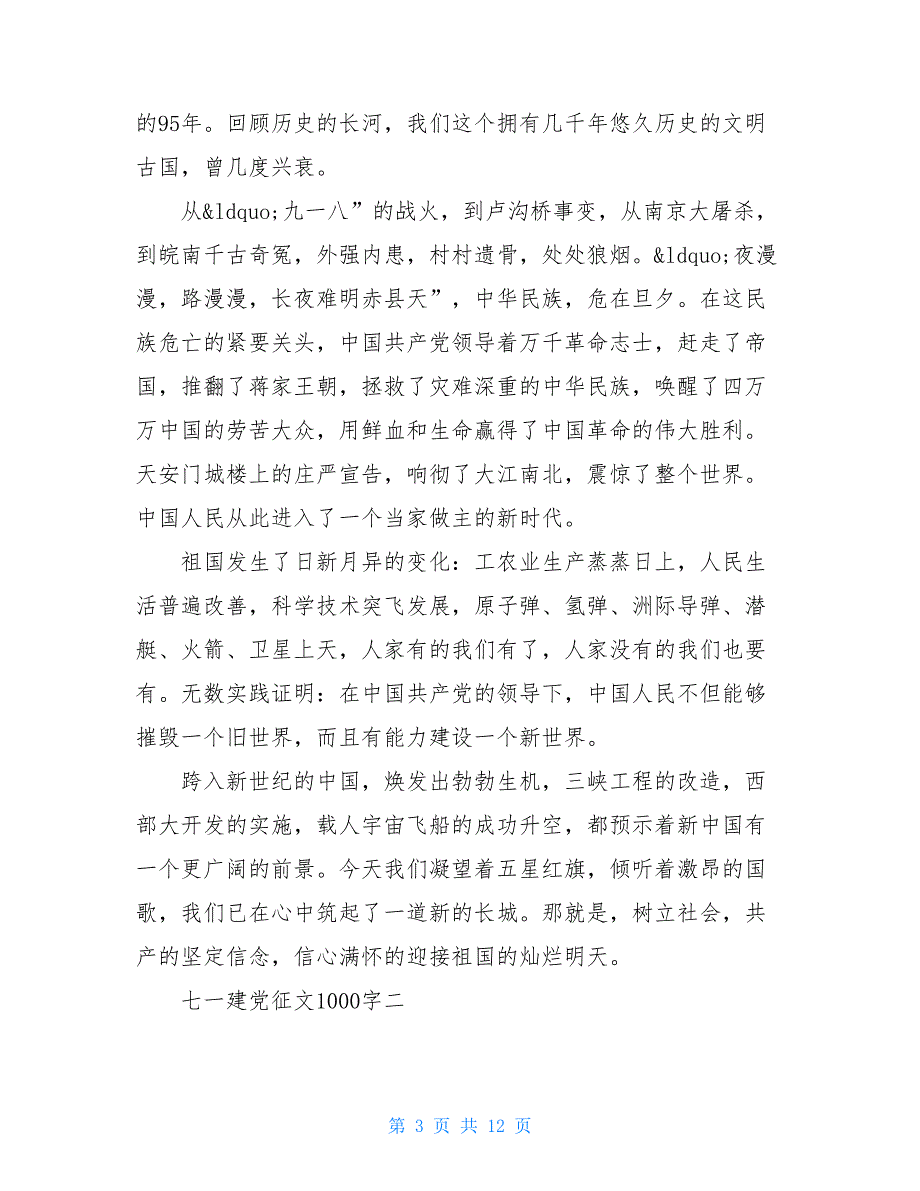 的95年。回顾历史的长河，我们这个拥有几千年悠久历史的文明
古国，曾几度兴衰。
从&ldquo;九一八”的战火，到卢沟桥事变，从南京大屠杀，
到皖南千古奇冤，外强内患，村村遗骨，处处狼烟。&ldquo;夜漫
漫，路漫漫，长夜难明赤县天”，中华民族，危在旦夕。在这民
族危亡的紧要关头，中国共产党领导着万千革命志士，赶走了帝
国，推翻了蒋家王朝，拯救了灾难深重的中华民族，唤醒了四万
万中国的劳苦大众，用鲜血和生命赢得了中国革命的伟大胜利。
天安门城楼上的庄严宣告，响彻了大江南北，震惊了整个世界。
中国人民从此进入了一个当家做主的新时代。
祖国发生了日新月异的变化：工农业生产蒸蒸日上，人民生
活普遍改善，科学技术突飞发展，原子弹、氢弹、洲际导弹、潜
艇、火箭、卫星上天，人家有的我们有了，人家没有的我们也要
有。无数实践证明：在中国共产党的领导下，中国人民不但能够
摧毁一个旧世界，而且有能力建设一个新世界。
跨入新世纪的中国，焕发出勃勃生机，三峡工程的改造，西
部大开发的实施，载人宇宙飞船的成功升空，都预示着新中国有
一个更广阔的前景。今天我们凝望着五星红旗，倾听着激昂的国
歌，我们已在心中筑起了一道新的长城。那就是，树立社会，共
产的坚定信念，信心满怀的迎接祖国的灿烂明天。
七一建党征文1000字二
第 3 页 共 12 页